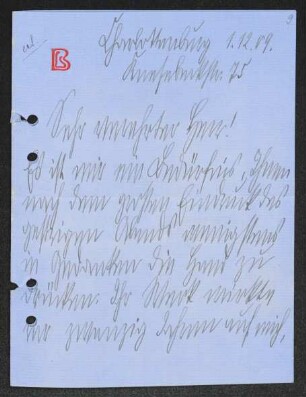 9
erl.
Charlottenburg 1.12.09.
Knesebeckstr. 75
B
Sehr verehrter Herr!
Es ist mir ein Bedürfnis, Ihnen
nach dem großen Eindruck des
gestrigen Abends wenigstens
in Gedanken die Hand zu
drücken. Ihr Werk wirkte
vor zwanzig Jahren auf mich,